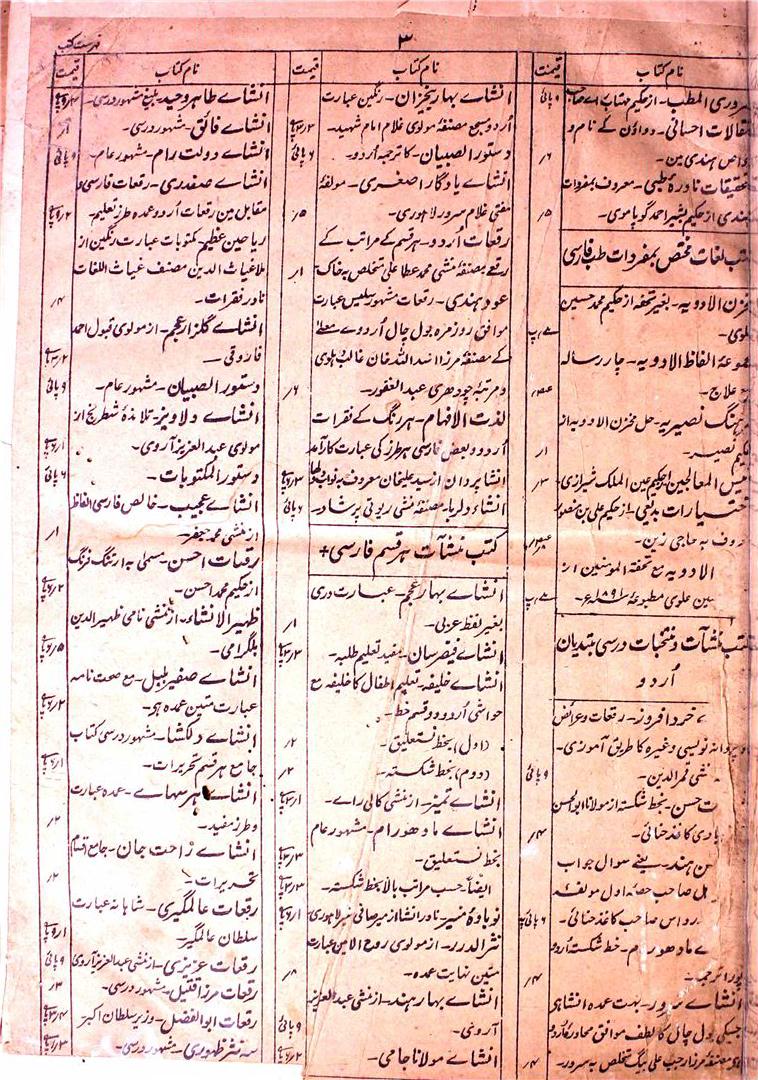 ۳
فہرست کتب
نام کتاب
قیمت
ضروری المطب۔ از حکیم
۹ پائی
مقالات احسانی۔ دواؤں کے نام و
خواص ہندی مین۔
۶/
تحقیقات نادرہ طبی۔ معروف بمفردات
ہندی از حکیم بشیر احمد گوپاموی۔
۵/
کتب لغات مختص بمفردات طب فارسی
مخزن الادویہ۔ بغیر تحفہ از حکیم محمد حسین
علوی۔
مجموعۂ الفاظ الادویہ۔ چار رسالہ
مع علاج۔
فرہنگ نصیریہ۔ حل مخزن الادویہ از
حکیم نصیر۔
۱ر
انیس المعالجین از حکیم عین الملک شیرازی۔
۳/
اختیارات بدیعی۔ از حکیم علی بن منصور
معروف بہ حاجی زین۔
الادویہ مع تحفۃ المومنین از
حسین علوی مطبوعہ ۱۸۹۱ء۔
کتب منشآت و منتخبات درسی مبتدیان
اُردو
خرد افروز۔ رقعات و عرائض
و پروانہ نویسی وغیرہ کا طریق آموزی۔
منشی قمر الدین۔
۹ پائی
حسن۔ بخط شکستہ از مولانا ابو الحسن
کاغذ حنائی۔
۴/
ہند۔ یعنے سوال جواب
صاحب حصۂ اول مولفہ
صاحب کاغذ حنائی۔
۶ پائی
مادھو رام۔ خط شکستہ اُردو
پورا ترجمہ۔
۴/
انشاے سرور۔ بہت عمدہ انشا ہر
جسکی بول چال کا لطف موافق محاورہ اُردو
مصنفہ مرزا رجب علی بیگ تخلص بہ سرور۔
۴/
نام کتاب
قیمت
انشاے بہار بیخزان۔ رنگین عبارت
اُردو مسجع مصنفہ مولوی غلام امام شہید۔
دستور الصبیان۔ کا ترجمہ اُردو۔
۶ پائی
انشاے یادگار اصغری۔ مولفۂ
مفتی غلام سرور لاہوری۔
۵/
رقعات اُردو۔ ہر قسم کے مراتب کے
رقعے مصنفۂ منشی محمد عطا علی متخلص بہ خاک۔
۱ر
عود ہندی۔ رقعات مشہور سلیس عبارت
موافق روزمرہ بول چال اُردوے معلے
کے مصنفہ مرزا اسد اللہ خان غالب دہلوی
و مرتبۂ چودھری عبد الغفور۔
۶/
لذت الافہام۔ ہر رنگ کے فقرات
اُردو و بعض فارسی ہر طرز کی عبارت کارآمد
انشا پردازان از سید علیخان معروف
انشاء دلربا۔ مصنفۂ منشی ریوتی پرشاد۔
۶ پائی
کتب منشآت ہر قسم فارسی +
انشاے بہار عجم۔ عبارت دری
بغیر لفظ عربی۔
۱ر
انشاے فیض رسان۔ مفید تعلیم طلبہ۔
انشاے خلیفہ۔ تعلیم اطفال کا خلیفہ مع
حواشی اُردو و دو قسم خط۔
(اول) بخط نستعلیق۔
۲/
(دوم) بخط شکستہ۔
۲/
انشاے تمیز۔ از منشی کالی راے۔
انشاے مادھو رام۔ مشہور عام
بخط نستعلیق۔
ایضاً حسب مراتب بالا بخط شکستہ۔
نو باوۂ منیر۔ نادر انشا از میر صافی منیر لاہوری۔
نثر الدرر۔ از مولوی روح الامین عبارت
متین نہایت عمدہ۔
۸/
انشاے بہار ہند۔ از منشی عبد العزیز
آروی۔
۹ پائی
انشاے مولانا جامی۔
نام کتاب
قیمت
انشاے طاہر وحید۔ بلیغ مشہور درسی۔
انشاے فائق۔ مشہور درسی۔
۱ر
انشاے دولت رام۔ مشہور عام۔
۹ پائی
انشاے صفدری۔ رقعات فارسی و
مقابل مین رقعات اُردو عمدہ طرز تعلیم۔
ریاحین عظیم۔ مکتوبات عبارت رنگین از
ملا غیاث الدین مصنف غیاث اللغات
نادر فقرات۔
۴/
انشاے گلزار عجم۔ از مولوی قبول احمد
فاروقی۔
دستور الصبیان۔ مشہور عام۔
۹ پائی
انشاے دلاویز۔ تلازمۂ شطرنج از
مولوی عبد العزیز آروی۔
دستور المکتوبات۔
۶ پائی
انشاے عجیب۔ خالص فارسی الفاظ
از منشی محمد جعفر۔
۱ر
رقعات احسن۔ مسمیٰ بہ ارتنگ فرنگ
از حکیم محمد احسن۔
ظہیر الانشاء۔ از منشی نامی ظہیر الدین
بلگرامی۔
انشاے صفیر بلبل۔ مع صحت نامہ
عبارت متین عمدہ ہی۔
انشاے دلکشا۔ مشہور درسی کتاب
جامع ہر قسم تحریرات۔
انشاے ہر سہاے۔ عمدہ عبارت
و طرز مفید۔
۲/
انشاے راحت جان۔ جامع اقسام
تحریرات۔
۲/
رقعات عالمگیری۔ شاہانہ عبارت
سلطان عالمگیر۔
رقعات عزیزی۔ از منشی عبد العزیز آروی
۹ پائی
رقعات مرزا قتیل۔ مشہور درسی۔
۳/
رقعات ابو الفضل۔ وزیر سلطان اکبر۔
سہ نثر ظہوری۔ مشہور درسی۔